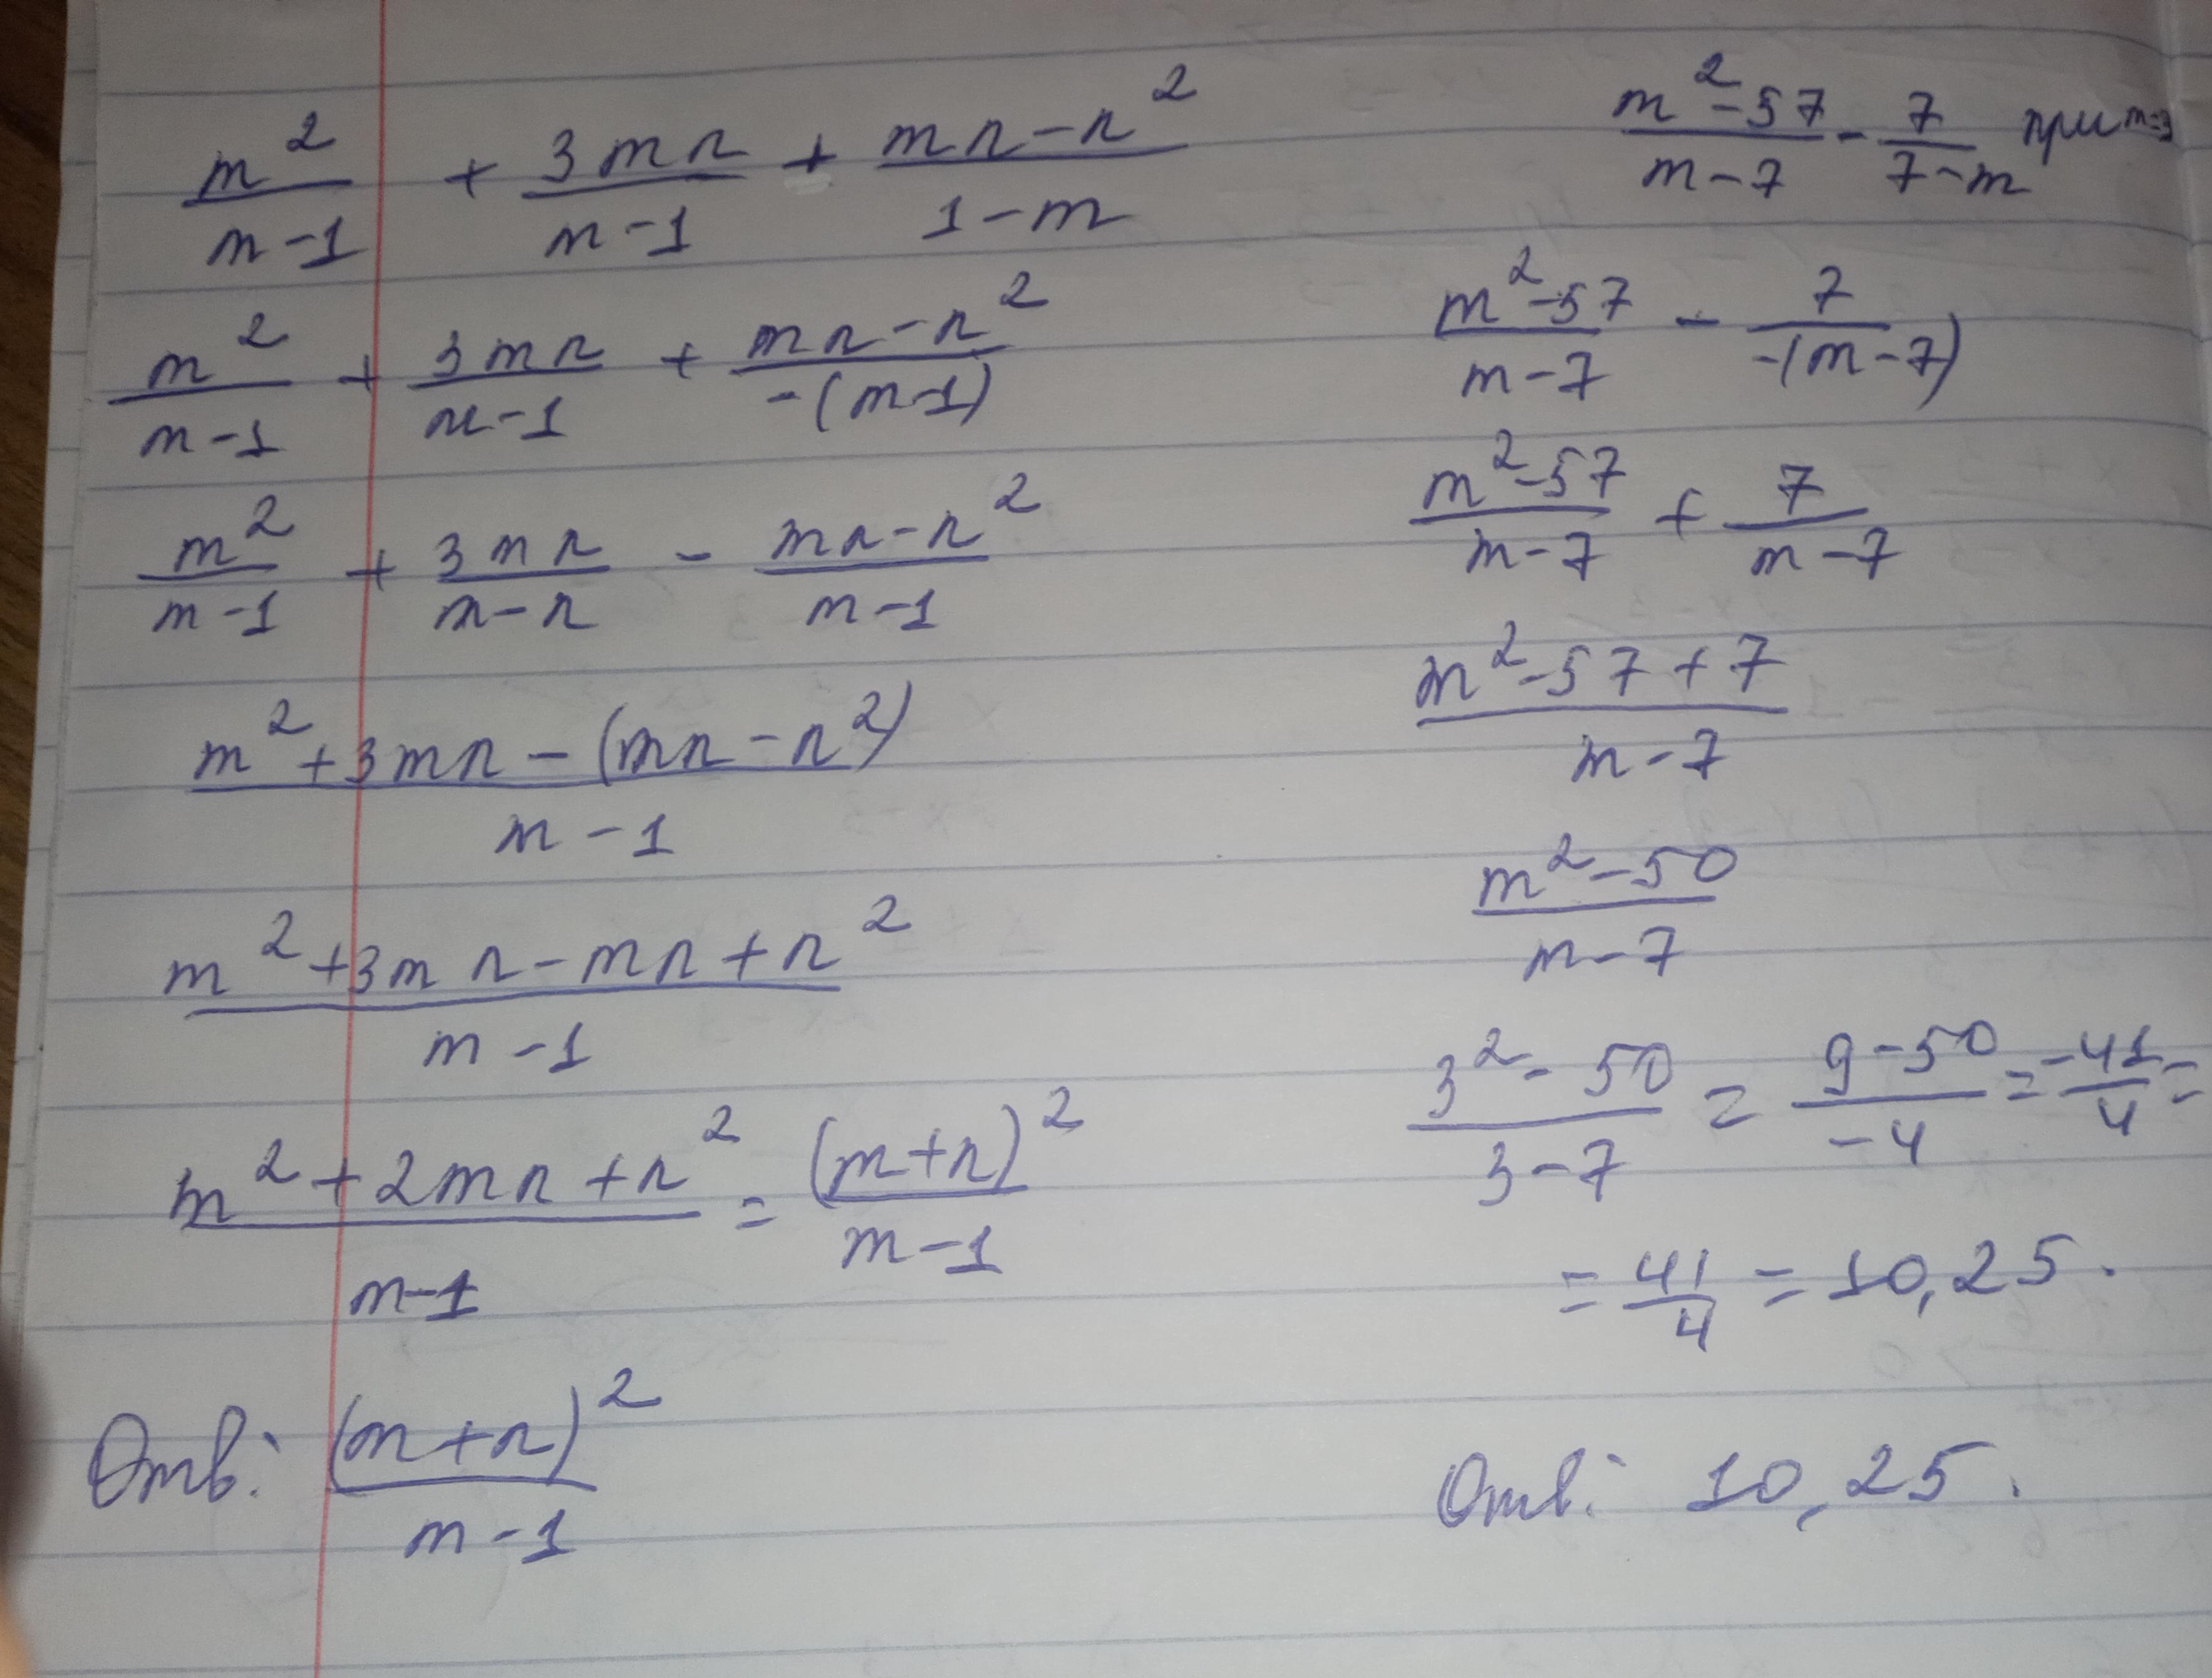 m²/(m-1) + 3mn/(m-1) + (mn-n²)/(1-m)
m²/(m-1) + 3mn/(m-1) + (mn-n²)/(-(m-1))
m²/(m-1) + 3mn/(m-n) - (mn-n²)/(m-1)
(m²+3mn-(mn-n²))/(m-1)
(m²+3mn-mn+n²)/(m-1)
(m²+2mn+n²)/(m-1) = (m+n)²/(m-1)
Отв: (m+n)²/(m-1)
(m²-57)/(m-7) - 7/(7-m) при m=3
(m²-57)/(m-7) - 7/(-(m-7))
(m²-57)/(m-7) + 7/(m-7)
(m²-57+7)/(m-7)
(m²-50)/(m-7)
(3²-50)/(3-7) = (9-50)/(-4) = -41/4 =
= 41/4 = 10,25.
Отв: 10,25.